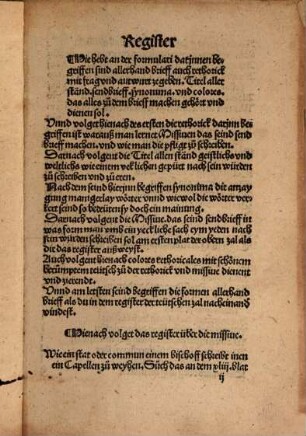 Register
Hie hebt an der formulari darjnnen be⸗
griffen sind allerhand brieff auch rethorick
mit frag vnd antwurt ze geben. Titel aller
ständ. sendbrieff. synonima. vnd colores.
das alles zů dem brieff machen gehört vnd
dienen sol.
Unnd volget hienach des ersten die rethorick darjnn be⸗
griffen ist warauß man lernet Missiuen das seind send
brieff machen. vnd wie man die pfligt zů schreiben.
Darnach volgent die Titel aller ständ geistlichs vnd
weltlichs wie einem yeklichen gepürt nach sein würden
zů schreiben vnd zů eren.
Nach dem seind hierjnn begriffen synonima die anzay
gung mangerlay wörter vnnd wiewol die wörter ver
kert seind so bedeutents doch ein mainung.
Darnach volgent die Missiue. das seind sendbrieff in
was form man vmb ein yeckliche sach eym yeden nach
sein wirden schreiben sol am ersten plat der obern zal als
die das register außweyst.
Auch volgent hienach colores rethoricales mit schönem
berümptem teütsch zů der rethorick vnd missiue dienent
vnd zyerendt.
Unnd am letsten seind begriffen die formen allerhand
brieff als du in dem register der teütschen zal nacheinand
vindest.
Hienach volget das register über die missiue.
Wie ein stat oder commun einem bischoff schreibt inen
ein Capellen zů weyhen. Sůch das an dem xliij. blat
ij